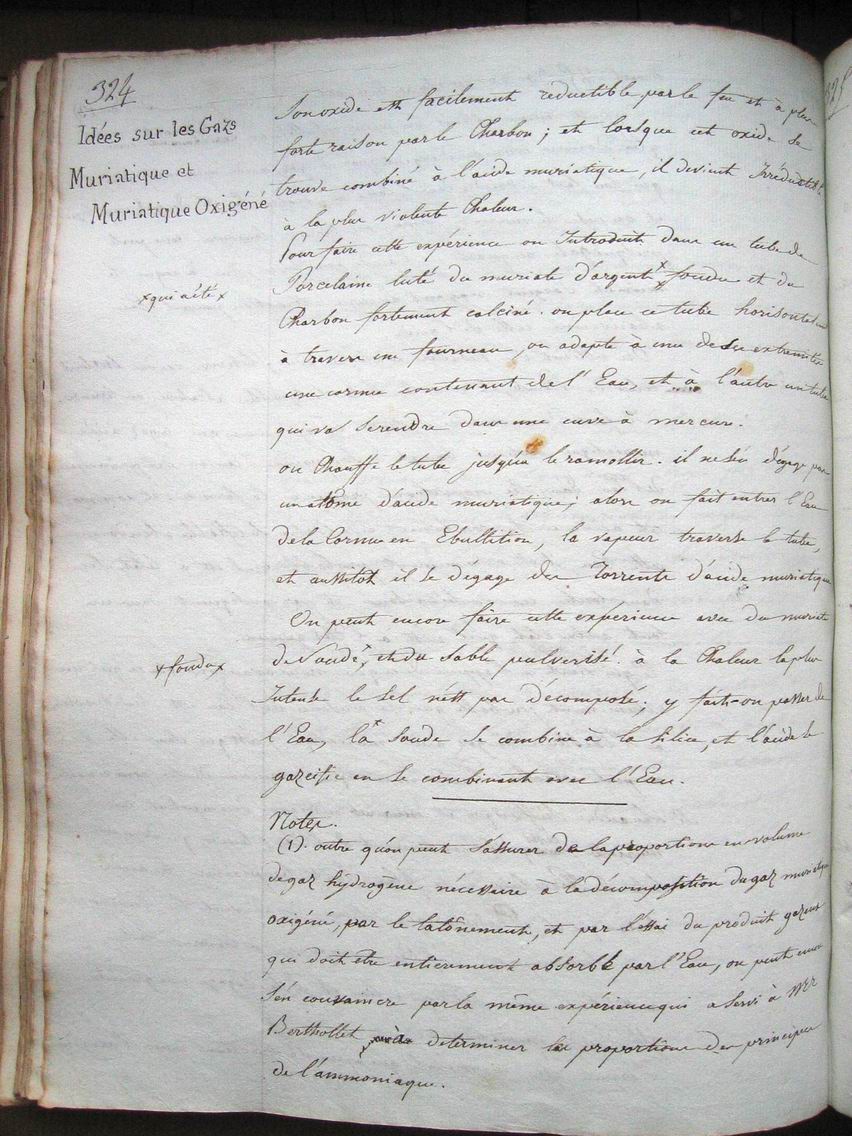 324
Idées sur les Gazs
Muriatique et
Muriatique Oxigéné
Son oxide est facilement réductible par le feu et à plus
forte raison par le Charbon; et lorsque cet oxide se
trouve combiné à l'acide muriatique, il devient Irréductible
à la plus violente Chaleur.
Pour faire cette expérience on Introduit dans un tube de
Porcelaine luté du muriate d'argent x fondu et du
x qui a été x
Charbon fortement calciné. on place ce tube horisontalement
à travers un fourneau, on adapte à une de ses extremités
une cornue contenant de l'Eau, et à l'autre un tube
qui va se rendre dans une cuve à mercure.
on Chauffe le tube jusqu'à le ramollir. il ne s'en dégage pas
un atôme d'acide muriatique; alors on fait entrer l'Eau
de la Cornue en Ebullition, la vapeur traverse le tube,
et aussitôt il se dégage des Torrents d'acide muriatique
On peut encore faire cette expérience avec du muriate
de Soude x, et du sable pulverisé. à la Chaleur la plus
x fondu x
Intense le Sel n'est pas décomposé; y fait-on passer de
l'Eau, la Soude se combine à la silice, et l'acide se
gazeifie en se combinant avec l'Eau.
Notes.
(1). outre qu'on peut s'assurer de la proportion en volume
de gaz hydrogène nécessaire à la décomposition du gaz muriatique
oxigéné, par le tatônement, et par l'essai du produit gazeux
qui doit être entierement absorbé par l'Eau, on peut encore
s'en convaincre par la même expérience qui a servi à Mr
Berthollet à determiner les proportions des principes
de l'ammoniaque.